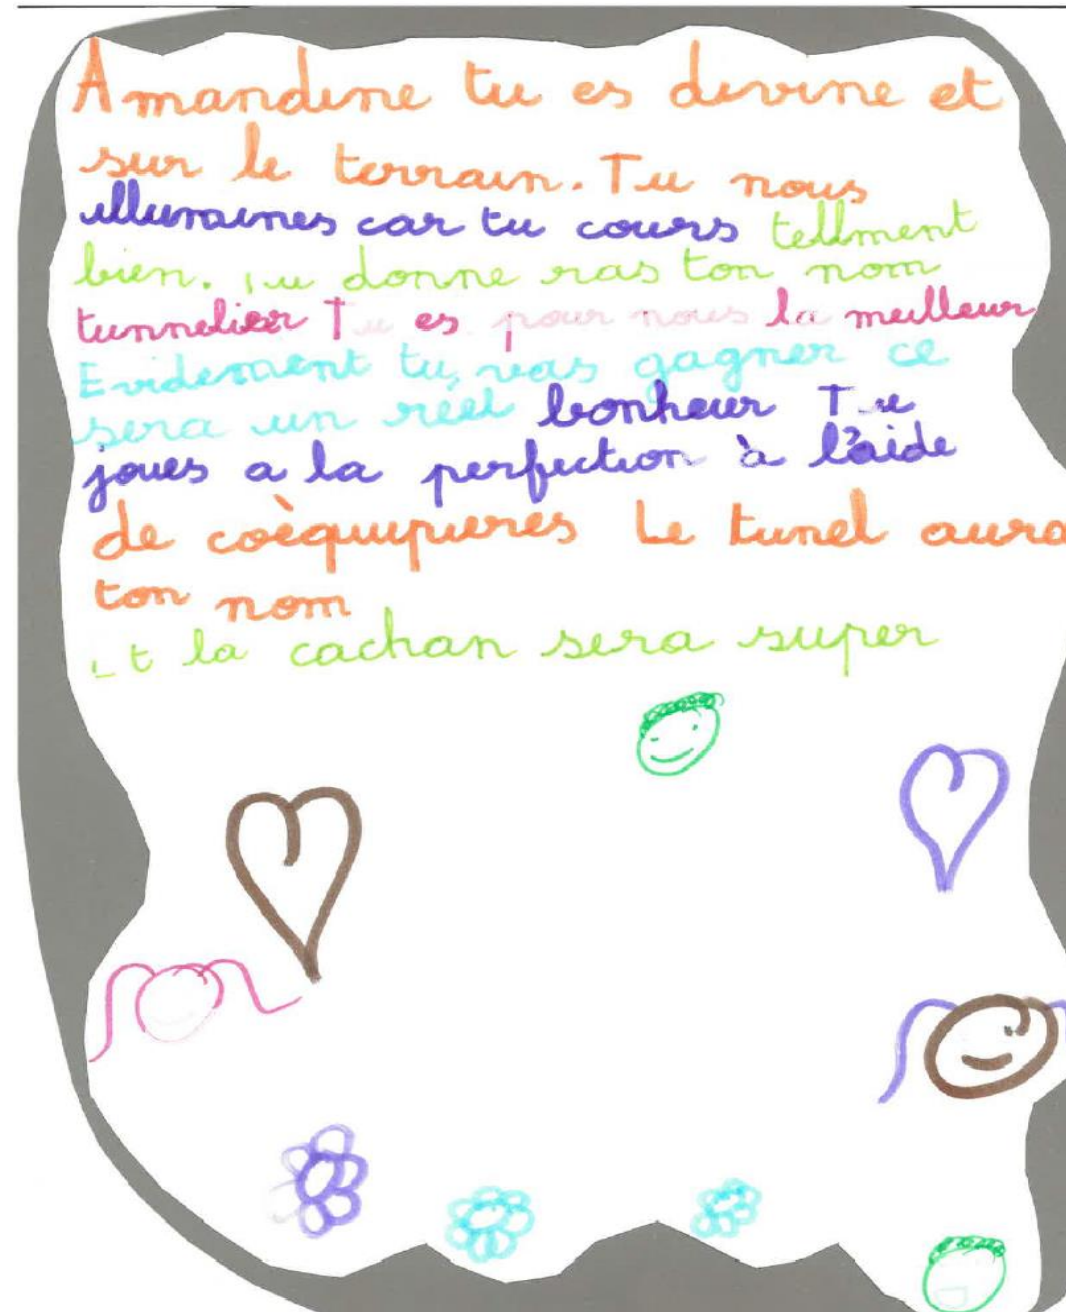 Amandine tu es divine et
sur le terrain. Tu nous
illumaines car tu cours tellment
bien. Tu donne ras ton nom
tunnelier Tu es pour nous la meilleur
Evidement tu vas gagner ce
sera un réel bonheur Tu
joues a la perfection à l'aide
de coèquipieres Le tunel aura
ton nom
Et la cachan sera super